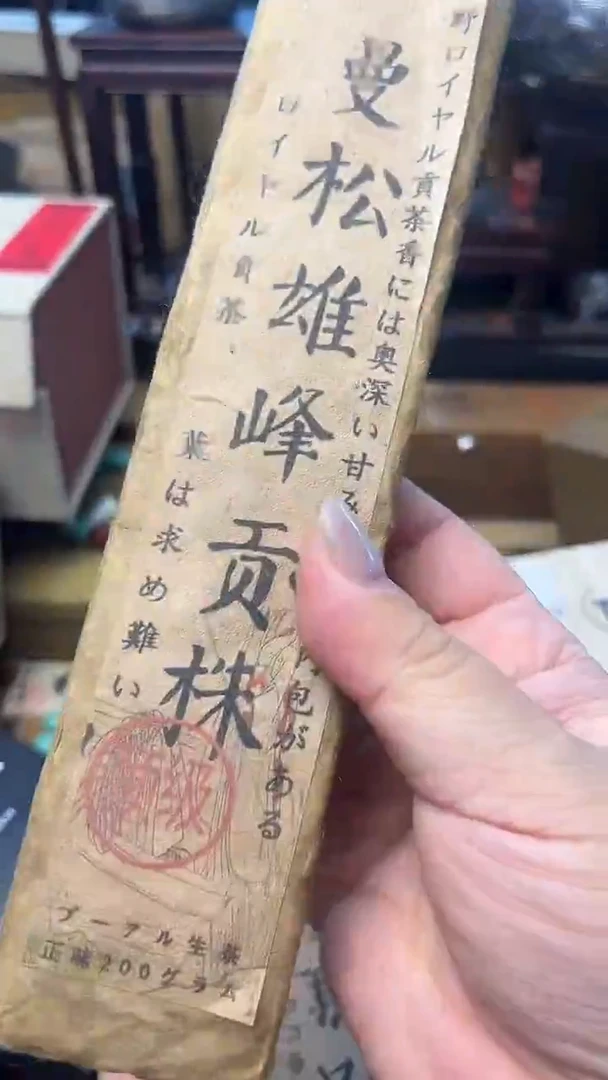 野ロイヤル貢茶香には奥深い甘み
包がある
曼松雄峰贡株
ロイドル貢茶、
葉は求め難い
プーアル生茶
正味200グラム